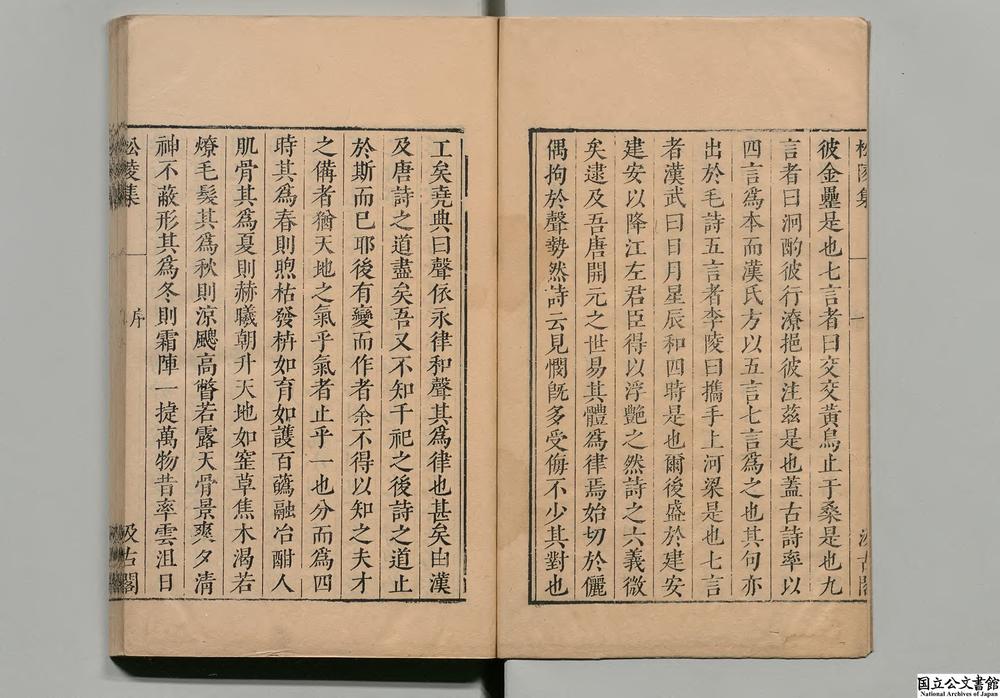 松陵集
一
汲古閣
彼金罍是也七言者曰交交黃鳥止于桑是也九
言者曰泂酌彼行潦挹彼注茲是也蓋古詩率以
四言爲本而漢氏方以五言七言爲之也其句亦
出於毛詩五言者李陵曰攜手上河梁是也七言
者漢武曰日月星辰和四時是也爾後盛於建安
建安以降江左君臣得以浮艷之然詩之六義微
矣逮及吾唐開元之世易其體爲律焉始切於儷
偶拘於聲勢然詩云見憫旣多受侮不少其對也
工矣堯典曰聲依永律和聲其爲律也甚矣由漢
及唐詩之道盡矣吾又不知千祀之後詩之道止
於斯而已耶後有變而作者余不得以知之夫才
之備者猶天地之氣乎氣者止乎一也分而爲四
時其爲春則煦枯發枿如育如護百蘤融冶酣人
肌骨其爲夏則赫曦朝升天地如窰草焦木渴若
燎毛髮其爲秋則涼颸高瞥若露天骨景爽夕清
神不蔽形其爲冬則霜陣一捷萬物昔率雲沮日
松陵集
序
汲古閣
国立公文書館
National Archives of Japan